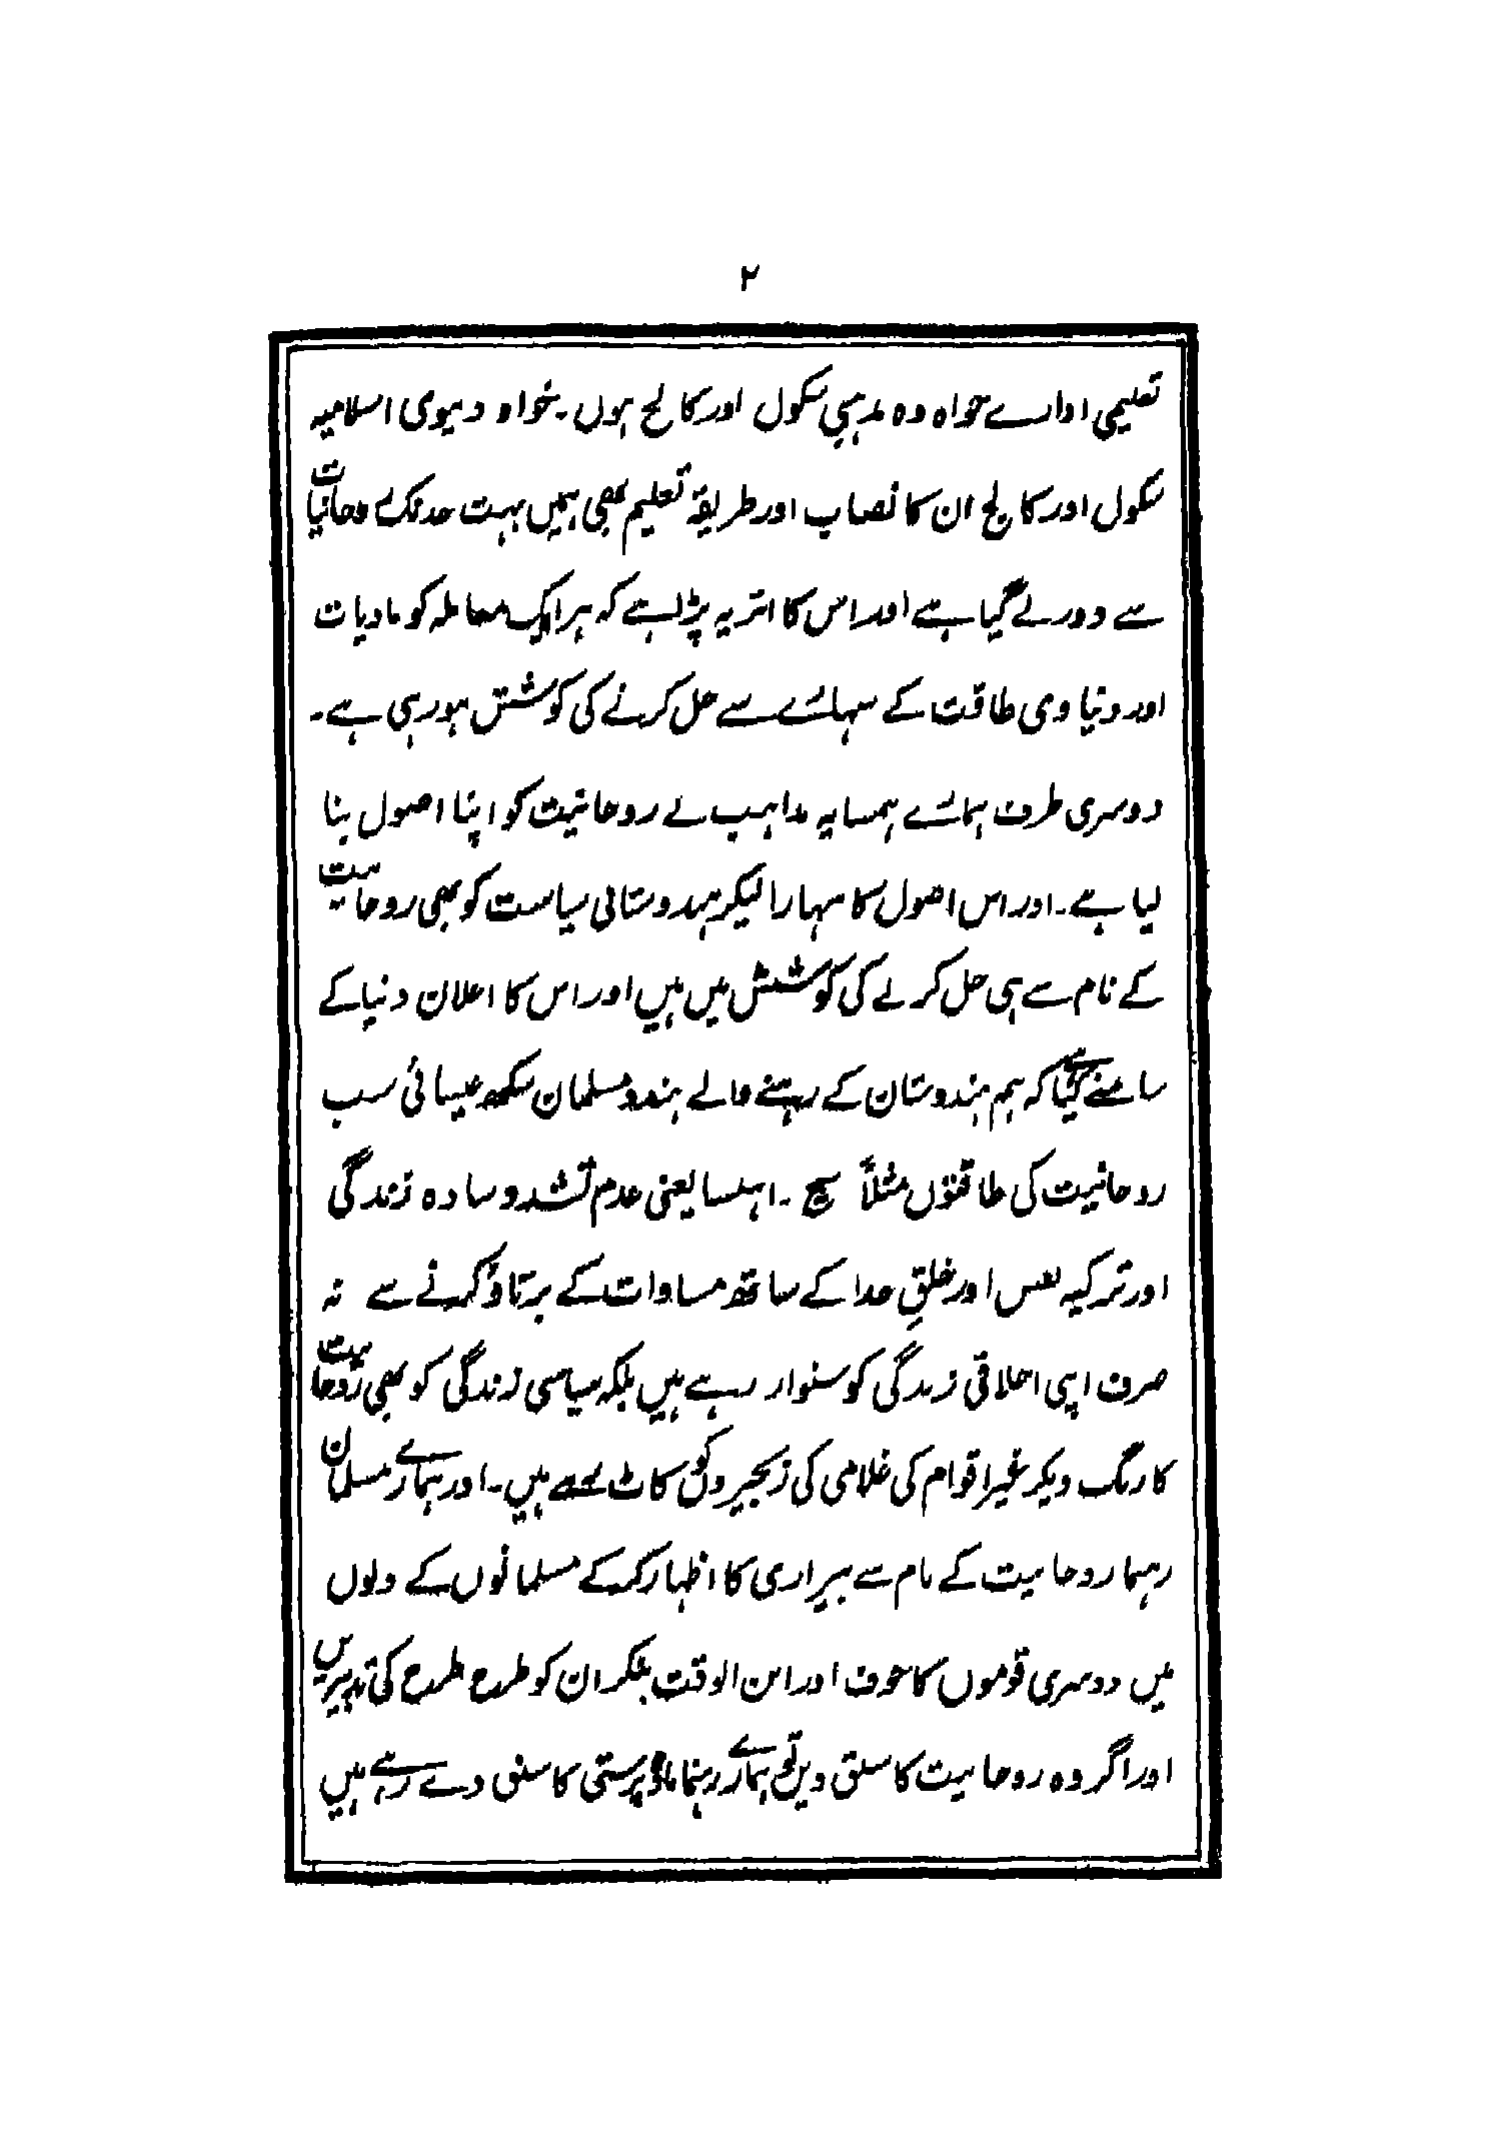 ۲
تعلیمی ادارے خواہ وہ مذہبی سکول اور کالج ہوں۔ خواہ دنیوی اسلامیہ
سکول اور کالج ان کا نصاب اور طریقۂ تعلیم بھی ہمیں بہت حد تک روحانیات
سے دور لے گیا ہے اور اس کا اثر یہ پڑا ہے کہ ہر ایک معاملہ کو مادیات
اور دنیاوی طاقت کے سہارے سے حل کرنے کی کوشش ہو رہی ہے۔
دوسری طرف ہمارے ہمسایہ مذاہب نے روحانیت کو اپنا اصول بنا
لیا ہے۔ اور اس اصول کا سہارا لیکر ہندوستانی سیاست کو بھی روحانیت
کے نام سے ہی حل کرنے کی کوشش میں ہیں اور اس کا اعلان دنیا کے
سامنے کیا ہے کہ ہم ہندوستان کے رہنے والے ہندو مسلمان سکھ عیسائی سب
روحانیت کی طاقتوں مثلاً سچ۔ اہنسا یعنی عدم تشدد و سادہ زندگی
اور تزکیہ نفس اور خلقِ خدا کے ساتھ مساوات کے برتاؤ کرنے سے نہ
صرف اپنی اخلاقی زندگی کو سنوار رہے ہیں بلکہ سیاسی زندگی کو بھی روحانیت
کا رنگ دیکر غیر اقوام کی غلامی کی زنجیروں کو کاٹ رہے ہیں۔ اور ہمارے مسلمان
رہنما روحانیت کے نام سے بیزاری کا اظہار کر کے مسلمانوں کے دلوں
میں دوسری قوموں کا خوف اور ابن الوقت بنکر ان کو طرح طرح کی تدبیریں
اور اگر وہ روحانیت کا سبق دیں تو ہمارے رہنما مادہ پرستی کا سبق دے رہے ہیں